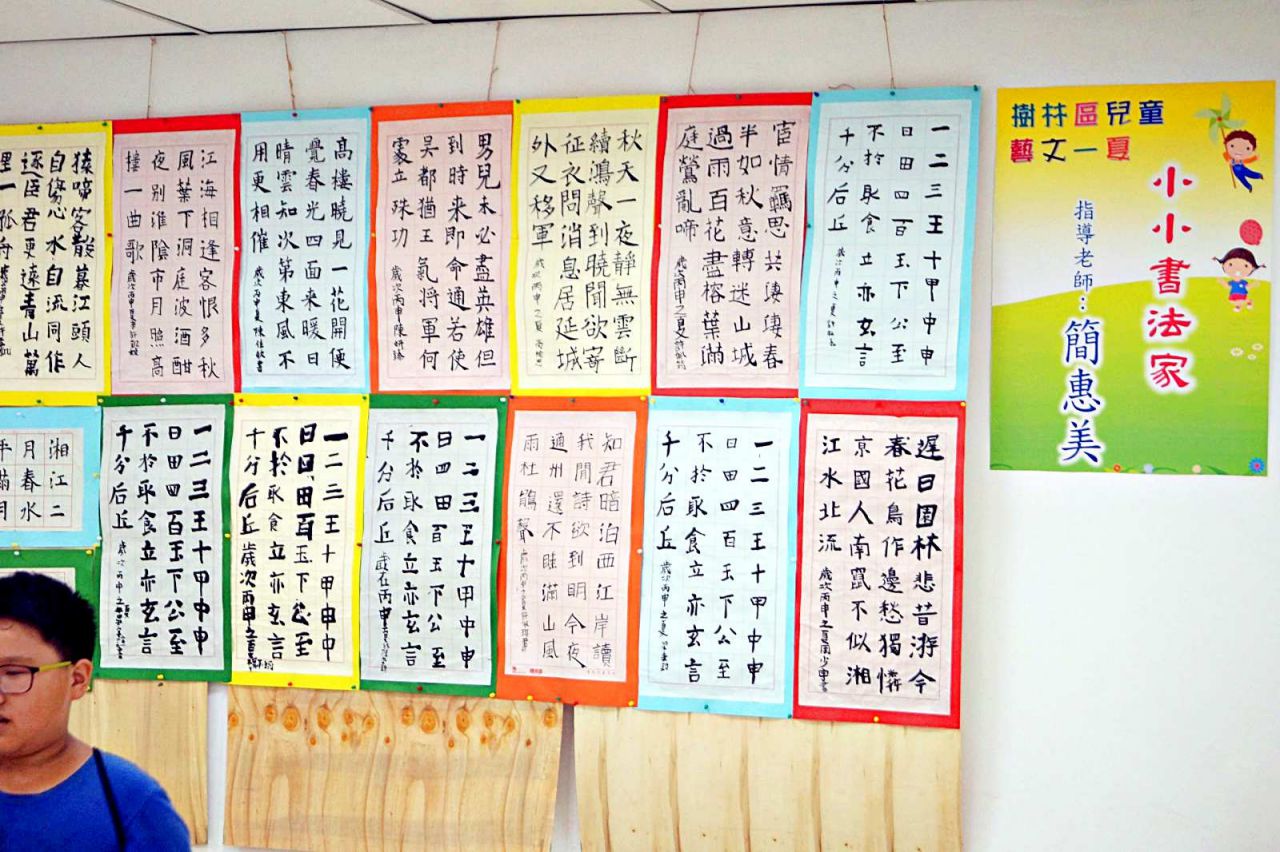 樹林區兒童
藝文一夏
小小書法家
指導老師：簡惠美
一二三王十甲中申
日田四百玉下公至
不於取食立亦玄言
千分后丘 歲次丙申之夏
宦情羈思共悽悽春
半如秋意轉迷山城
過雨百花盡榕葉滿
庭鶯亂啼 歲次丙申之夏
秋天一夜靜無雲斷
續鴻聲到曉聞欲寄
征衣問消息居延城
外又移軍 歲次丙申之夏
男兒未必盡英雄但
到時来即命通若使
吳都猶王氣將軍何
處立殊功 歲次丙申
高樓曉見一花開便
覺春光四面来暖日
晴雲知次第東風不
用更相催 歲次丙申夏
江海相逢客恨多秋
風葉下洞庭波酒酣
夜別淮陰市月照高
樓一曲歌 歲次丙申
猿啼客散暮江頭人
自傷心水自流同作
逐臣君更遠青山萬
里一孤舟
遲日園林悲昔游今
春花鳥作邊愁獨憐
京國人南竄不似湘
江水北流 歲次丙申之夏
一二三王十甲中申
日田四百玉下公至
不於取食立亦玄言
千分后丘 歲次丙申之夏
知君暗泊西江岸讀
我閒詩欲到明今夜
通州還不眠滿山風
雨杜鵑聲 歲次丙申
一二三王十甲中申
日四田百玉下公至
不於取食立亦玄言
千分后丘 歲在丙申
一二三王十甲申申
日曰田百玉下公至
不於取食立亦玄言
千分后丘 歲次丙申之夏
一二三王十甲中申
日田四百玉下公至
不於取食立亦玄言
千分后丘 歲次丙申之
湘江二
月春水
平滿月